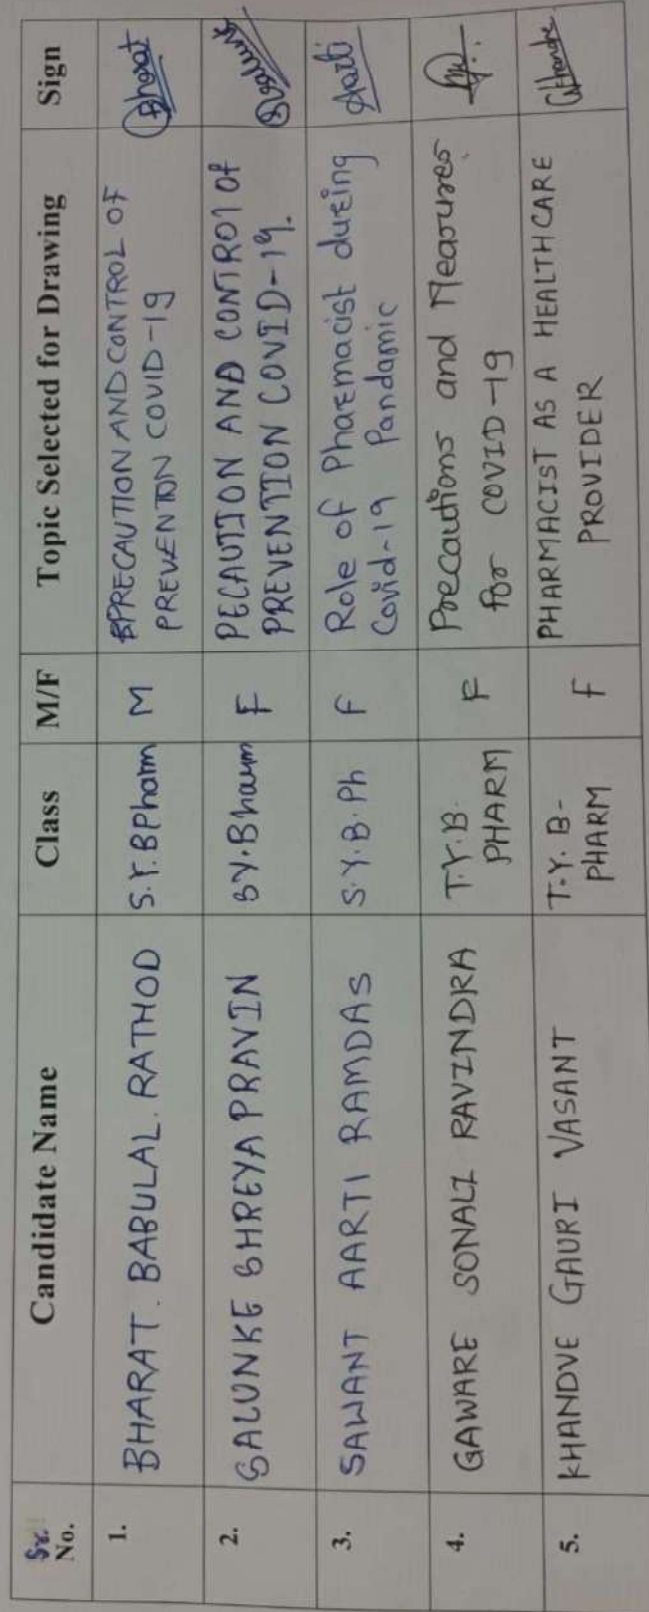 Sr. No. Candidate Name Class M/F Topic Selected for Drawing Sign
1. BHARAT. BABULAL. RATHOD S.Y.BPharm M PRECAUTION AND CONTROL OF
PREVENTION COVID-19 Bharat
2. SALUNKE SHREYA PRAVIN SY.Bharm F PECAUTION AND CONTROL of
PREVENTION COVID-19.
3. SAWANT AARTI RAMDAS S.Y.B.Ph F Role of Pharmacist during
Covid-19 Pandamic Aarti
4. GAWARE SONALI RAVINDRA T.Y.B. F Precautions and Measures
PHARM for COVID-19
5. KHANDVE GAURI VASANT T.Y. B- F PHARMACIST AS A HEALTHCARE
PHARM PROVIDER